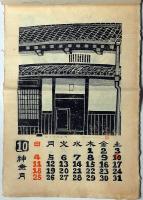 10
神無月
日 月 火 水 木 金 土
1 2 3
4 5 6 7 8 9 10
11 12 13 14 15 16 17
18 19 20 21 22 23 24
25 26 27 28 29 30 31